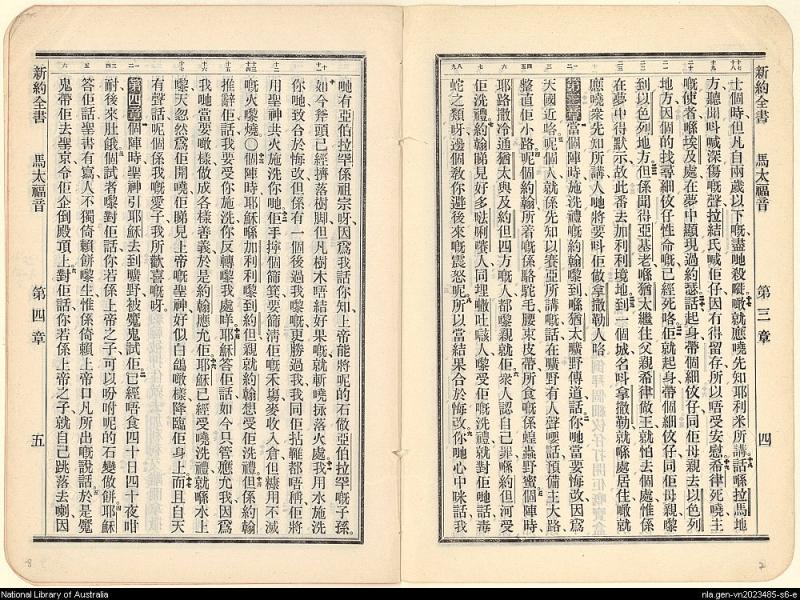 新約全書 馬太福音 第三章 四
士個時但凡自兩歲以下嘅盡哋殺嚹噉就應嘵先知耶利米所講話喺拉馬地
方聽聞呌喊深傷嘅聲拉結氏喊佢仔因有得留存所以唔受安慰希律死嘵主
嘅使者喺埃及處在夢中顯現過約瑟話起身帶個細伩仔同佢母親去以色列
地方因個的找尋細伩仔性命嘅已經死咯佢就起身帶個細伩仔同佢母親嚟
到以色列地方但係聞得亞基老喺猶太繼住父親希律做王就怕去個處惟係
在夢中得默示故此番去加利利境地到一個城名呌拿撒勒就喺處居住噉就
應嘵衆先知所講人哋將要呌佢做拿撒勒人咯
第三章當個陣時施洗禮嘅約翰嚟到喺猶太曠野傳道話你哋當要悔改因爲
天國近咯呢個人就係先知以賽亞所講嘅話在曠野有人聲嚶話預備主大路
整直佢小路呢個約翰所着嘅係駱駝毛腰束皮帶所食嘅係蝗蟲野蜜個陣時
耶路撒冷通猶太與及約但四方嘅人都嚟親就佢衆人認自己罪喺約但河受
佢洗禮約翰睇見好多𠵽唎嚌人同埋𠾴吐嗐人嚟受佢嘅洗禮就對佢哋話毒
蛇之類呀邊個敎你避後來嘅震怒呢所以當結果合於悔改你哋心中咪話我
哋有亞伯拉罕係祖宗呀因爲我話你知上帝能將呢的石做亞伯拉罕嘅子孫
如今斧頭已經擠落樹脚但凡樹木唔結好果嘅就斬嘵掁落火處我用水施洗
你哋致合於悔改但係有一個後過我嚟嘅更勝過我我同佢拈鞋都唔稱佢將
用聖神共火施洗你哋佢手擰個篩箕要篩淸佢嘅禾塲麥收入倉但糠用不滅
嘅火嚟燒〇個陣時耶穌喺加利利嚟到約但親就約翰想受佢洗禮但係約翰
推辭佢話我要受你施洗你反轉嚟我處咩耶穌答佢話如今只管應允我因爲
我哋當要噉樣做成各樣善義於是約翰應允佢耶穌已經受嘵洗禮就喺水上
嚟天忽然爲佢開嘵佢睇見上帝嘅聖神好似白鴿噉樣降臨佢身上而且自天
有聲話呢個係我嘅愛子我所歡喜嘅呀
第四章個陣時聖神引耶穌去到曠野被魔鬼試佢已經唔食四十日四十夜咁
耐後來肚餓個試者嚟對佢話你若係上帝之子可以吩咐呢的石變做餅耶穌
答佢話聖書有寫人不獨倚賴餅嚟生惟係倚賴上帝口凡所出嘅說話於是魔
鬼帶佢去聖京令佢企倒殿頂上對佢話你若係上帝之子就自己跳落去喇因
新約全書 馬太福音 第四章 五
National Library of Australia
nla.gen-vn2023485-s6-e